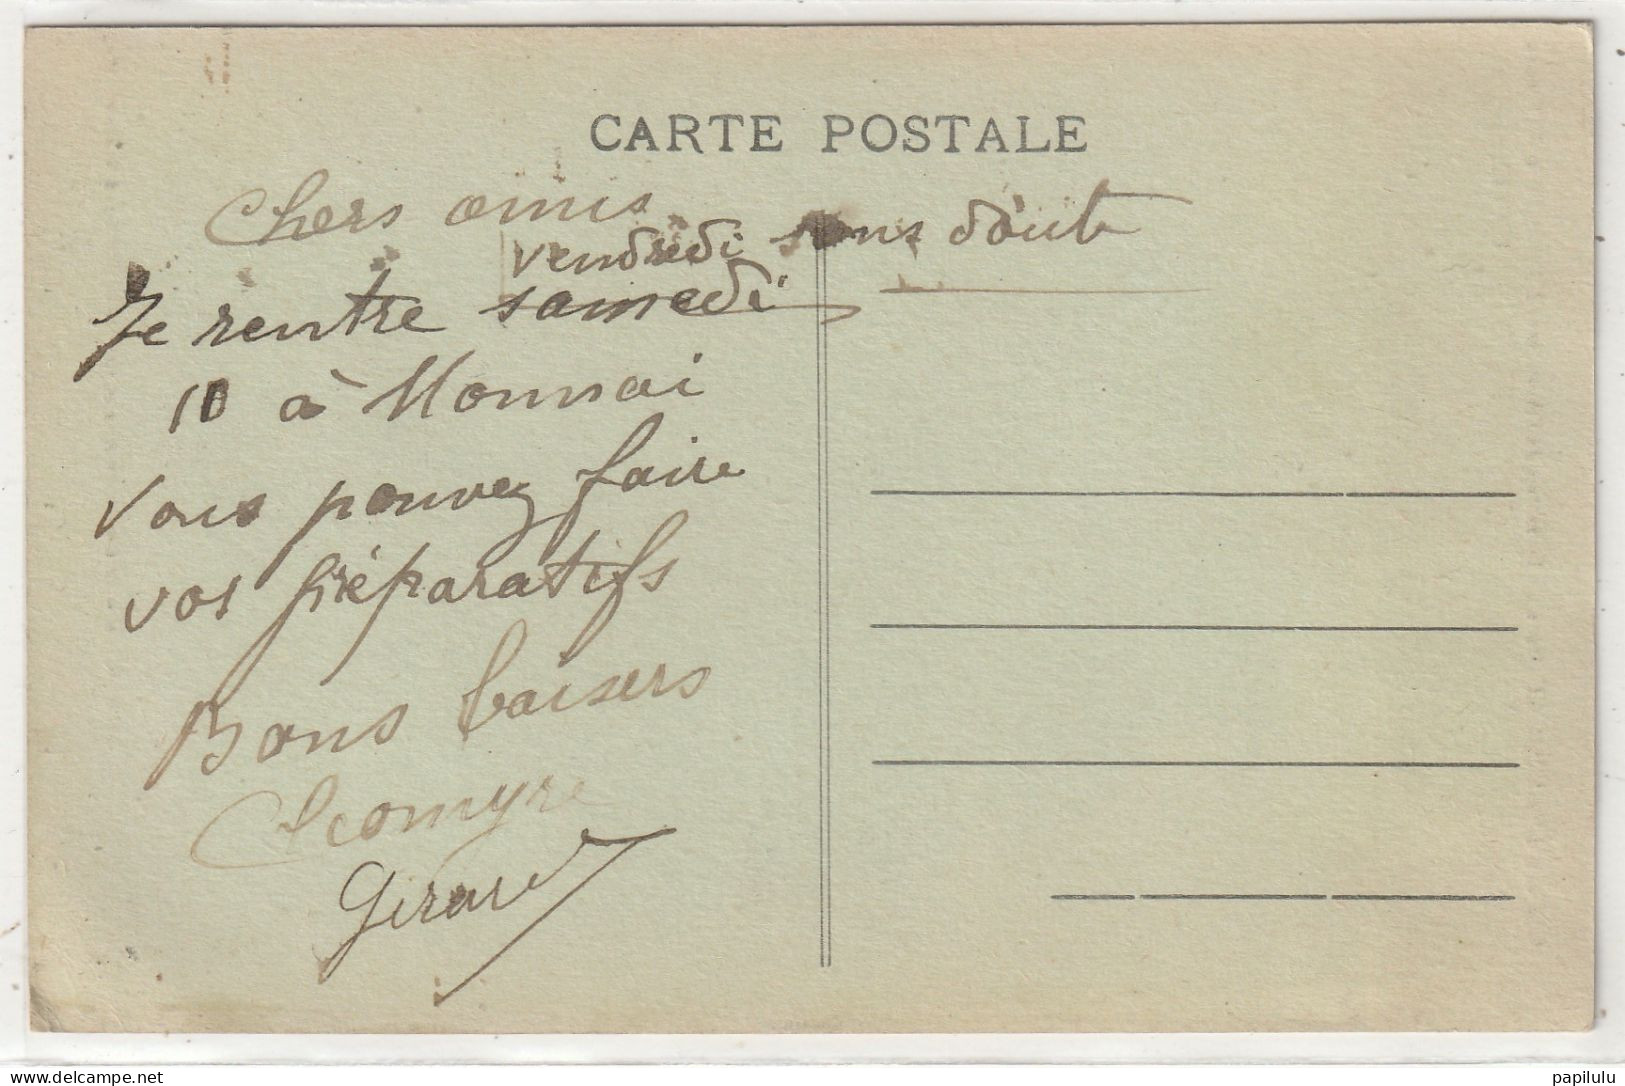 CARTE POSTALE
Chers amis
vendredi sans doute
Je rentre samedi
10 à Monnai
Vous pouvez faire
vos préparatifs
Bons baisers
Girard
delcampe.net
papilulu